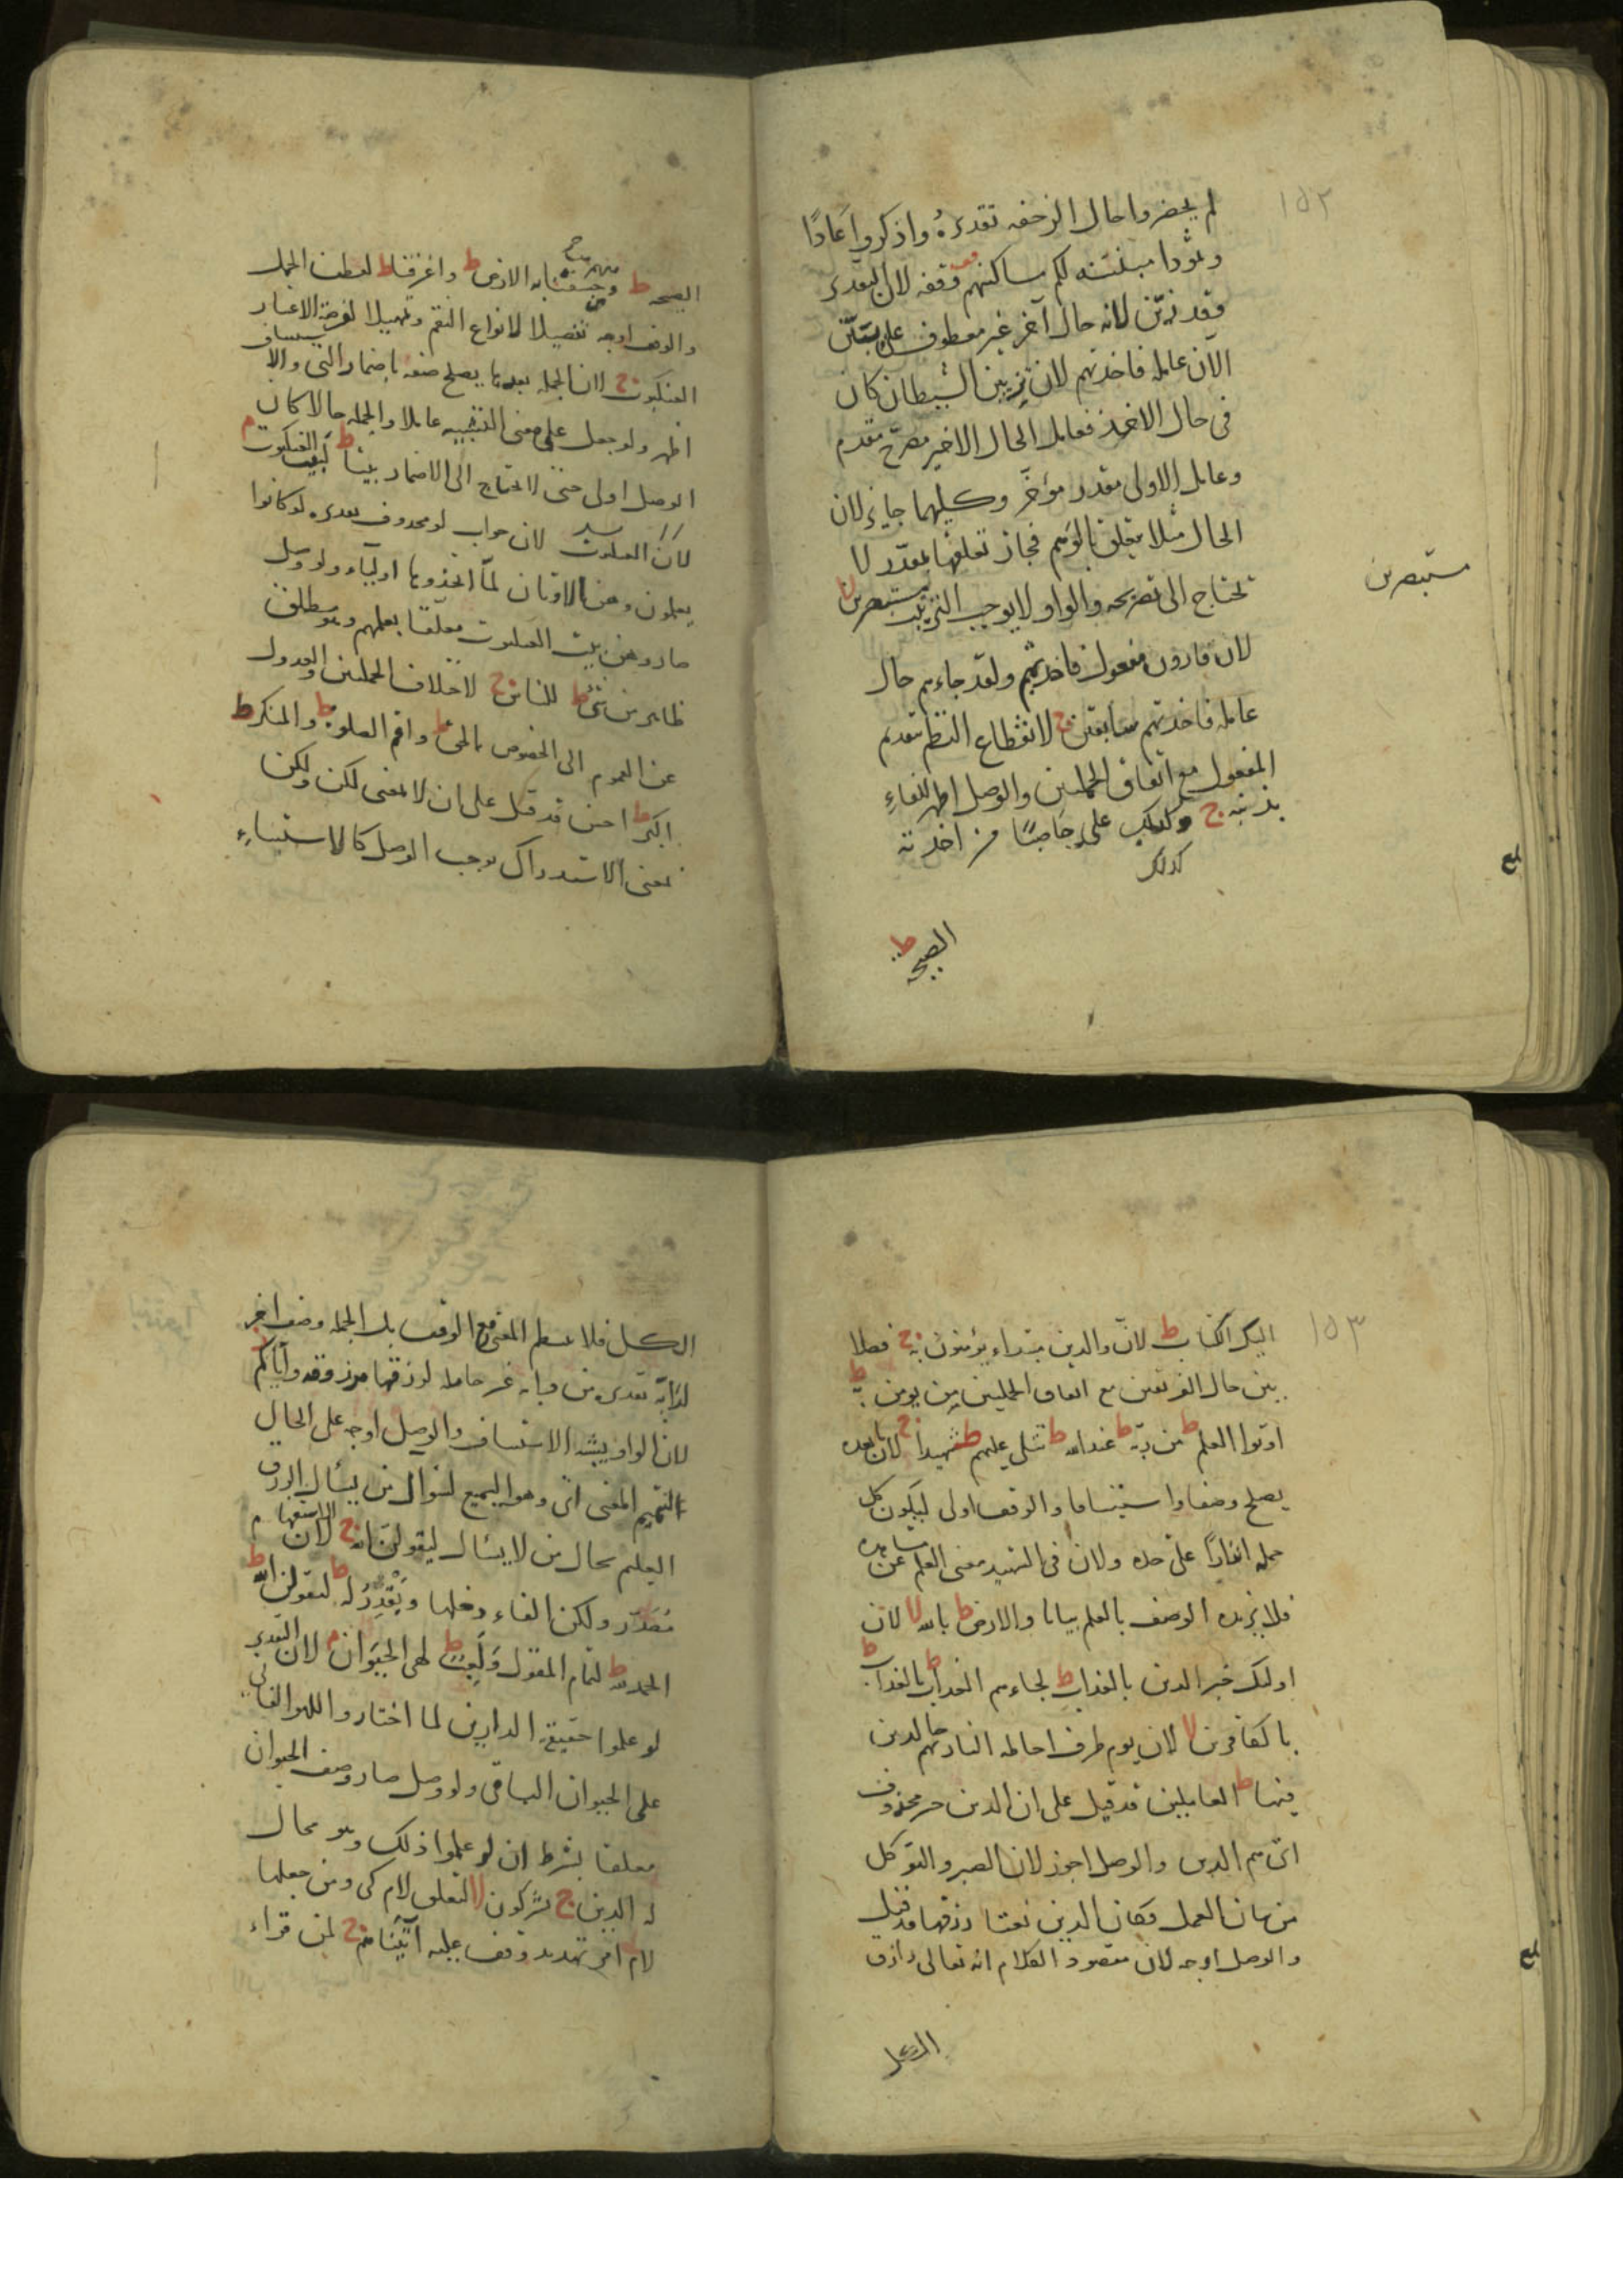 ١٥٢
لم يحضروا حال الزحفه تقديره واذكروا عادًا
وثمودا مبيّنته لكم مساكنهم وقفه لان التقدير
وقد زيّن لانه حال آخر غير معطوف على تبيّن
الان عامله فاخذتهم لان تزيين الشيطان كان
فى حال الاخذ فعامل الحال الاخير مصرّح مقدم
وعامل الاولى مقدر مؤخّر وكليهما جايز لان
الحال مثلا يتعلق بالوهم فجاز تعلقها بمقدّر لا
تحتاج الى تصريحه والواو لا يوجب الترتيب مستبصرين لا
مستبصرين
لان قارون مفعول فاخذتهم ولقد جاءهم حال
عامله فاخذتهم سابقين ج لانقطاع النظم بتقديم
المفعول مع اتفاق الجملتين والوصل اظهر للفاءِ
بذنبه ج وكذلك على حاصبًا من اخذته
كذلك
الصيحه ط
الصيحه ط وخسفنا به الارض ط واغرقنا ط لعطف الجمل
والوقف اوجه تفصيلا لانواع النقم وتمهيلا لفرصة الاعتبار
العنكبوت ج لان الجملة بعدها يصلح صفة باضمار التى والا
ستيناف
اظهر ولو جعل على معنى التشبيه عاملا والجملة حالا كان
الوصل اولى حتى لا تحتاج الى الاضمار بيتا ط لبيت العنكبوت م
لان جواب لو محذوف تقديره لو كانوا
يعلمون وهن الاوثان لمّا اتخذوها اولياء ولو وصل
صار وهن بيت العنكبوت معلقا بعلمهم وهو مطلق
ظاهر من شئ ط للناس ج لاختلاف الجملتين والعدول
عن العموم الى الخصوص بالحق ط واقم الصلوة ط والمنكر ط
اكبر ط احسن قد قيل على ان لا بمعنى لكن ولكن
بمعنى الاستدراك يوجب الوصل كالاستثناءِ
١٥٣
اليك الكتاب ط لانّ والذين مبتداء يؤمنون به ج فصلا
بين حال الفريقين مع اتفاق الجملتين من يومن به ط
اوتوا العلم ط من ربّه ط عند الله ط يتلى عليهم ط شهيدا ج لان ما بعده
يصلح وصفا واستينافا والوقف اولى ليكون كل
جملة انذارًا على حده ولان فى الشهيد معنى العلم عن مشاهده
فلا يزيده الوصف بالعلم بيانا والارض ط بالله لا لان
اولئك خبر الذين بالعذاب ط لجاءهم العذاب ط بالعذاب ط
بالكافرين لا لان يوم ظرف احاطه النار بهم خالدين
فيها ط العاملين قد قيل على ان الذين خبر محذوف
اى هم الذين والوصل اجوز لان الصبر والتوكل
من شان العمل فكان الذين نعتا رزقها قد قيل
والوصل اوجه لان مقصود الكلام انه تعالى رازق
الكل
الكل فلا يتم المعنى مع الوقف بل الجملة وصف اخر
لدابّة تقديره من دابه غير حامله لرزقها مرزوقه واياكم
لان الواو يشبه الاستيناف والوصل اوجه على الحال
لتتميم المعنى اى وهو السميع لسوال من يسأل الرزق
العليم بحال من لا يسال ليقولن الله ج لان الاستفهام
مُقَدّر ولكن الفاء دخلها ويقدر له ط ليقولن الله ط
الحمد لله ط لتمام المقول ولعب ط لهى الحيوان م لان التقدير
لو علموا حقيقة الدارين لما اختاروا اللهو الفانى
على الحيوان الباقى ولو وصل صار وصف الحيوان
معلقا بشرط ان لو علموا ذلك وهو محال
له الدين ج يشركون لا لتعلق لام كى ومن جعلها
لام امر تهديد وقف عليه آتَيْنَاهم ج لمن قراء